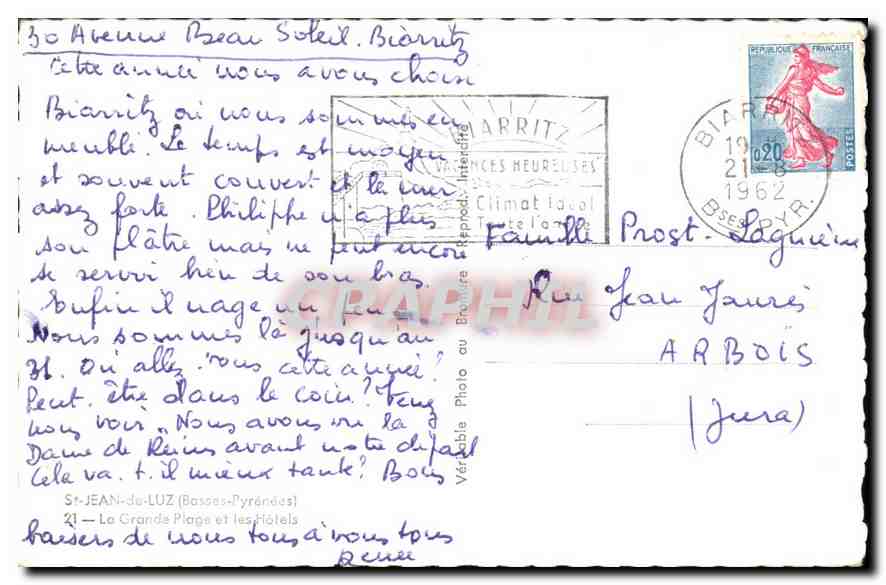 30 Avenue Beau Soleil. Biarritz
Cette année nous avons choisi
Biarritz où nous sommes en
meublé. Le temps est moyen
et souvent couvert et la mer
assez forte. Philippe n'a plus
son plâtre mais ne peut encore
se servir bien de son bras.
Enfin il nage un peu.
Nous sommes là jusqu'au
31. Où allez-vous cette année?
Peut-être dans le coin? Venez
nous voir. Nous avons vu la
Dame de Reims avant notre départ
Cela va-t-il mieux tante? Bons
St-JEAN-de-LUZ (Basses-Pyrénées)
21 — La Grande Plage et les Hôtels
baisers de nous tous à vous tous
Renée
Véritable Photo au Bromure - Reprod. Interdite
BIARRITZ
VACANCES HEUREUSES
Climat idéal
Toute l'année
BIARRITZ
19 H
21-8
1962
Bses PYR.
REPUBLIQUE FRANÇAISE
0,20
POSTES
Famille Prost-Lagnière
Rue Jean Jaurès
ARBOIS
(Jura)
CPAPHIL